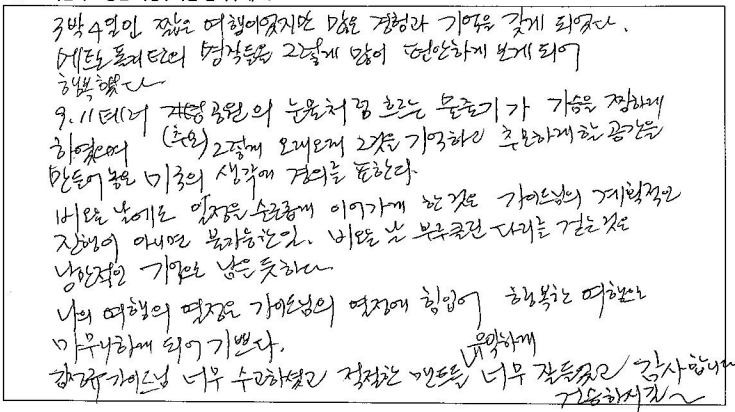 3박4일인 짧은 여행이었지만 많은 경험과 기억을 갖게 되었다.
메트로폴리탄의 명작들을 그렇게 많이 편안하게 보게 되어
행복했다
9.11테러 공원의 눈물처럼 흐르는 물줄기가 가슴을 찡하게
하였으며 (추모) 그렇게 오래오래 그것을 기억하고 추모하게 할 공간을
만들어 놓은 미국의 생각에 경의를 표한다.
비오는 날에도 일정을 수월하게 이어가게 한 것은 가이드님의 계획적인
진행이 아니면 불가능한일. 비오는 날 부루클린 다리를 걷는 것은
낭만적인 기억으로 남을 듯하다.
나의 여행의 열정은 가이드님의 열정에 힘입어 행복한 여행으로
마무리하게 되어 기쁘다.
유익하게
가이드님 너무 수고하셨고 적절한 멘트를 너무 잘들었고 감사합니다
건승하시길~